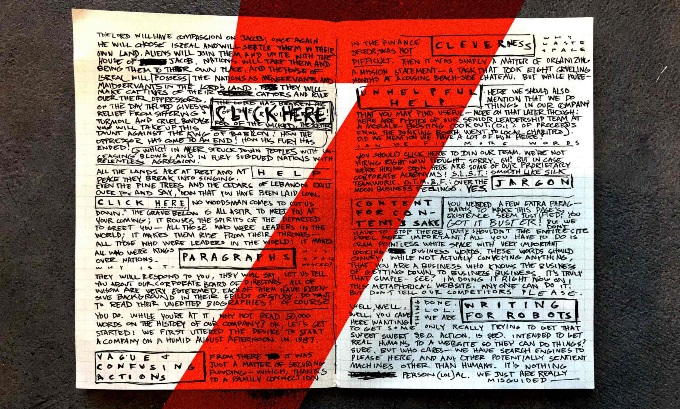 THE LORD WILL HAVE COMPASSION ON JACOB; ONCE AGAIN
HE WILL CHOOSE ISREAL AND WILL SETTLE THEM IN THEIR
OWN LAND. ALIENS WILL JOIN THEM AND UNITE WITH THE
HOUSE OF JACOB. NATIONS WILL TAKE THEM AND
BRING THEM TO THEIR OWN PLACE. AND THE HOUSE OF
ISREAL WILL POSSESS THE NATIONS AS MENSERVANTS AND
MAIDSERVANTS IN THE LORD'S LAND. THEY WILL
MAKE CAPTIVES OF THEIR CAPTORS AND RULE
OVER THEIR OPPRESSORS.
ON THE DAY THE LORD GIVES YOU
RELIEF FROM SUFFERING &
TURMOIL AND CRUEL BONDAGE
YOU WILL TAKE UP THIS
CLICK HERE
TAUNT AGAINST THE KING OF BABYLON: HOW THE
OPPRESSOR HAS COME TO AN END! HOW HIS FURY HAS
ENDED! WHICH IN ANGER STRUCK DOWN PEOPLES WITH UN-
CEASING BLOWS, AND IN FURY SUBDUED NATIONS WITH
RELENTLESS AGRESSION.
ALL THE LANDS ARE AT REST AND AT
PEACE THEY BREAK INTO SINGING.
HEL
EVEN THE PINE TREES AND THE CEDARS OF LEBANON EXULT
OVER YOU AND SAY, "NOW THAT YOU HAVE BEEN LAID LOW,
CLICK HERE
NO WOODSMAN COMES TO CUT US
DOWN." THE GRAVE BELOW IS ALL ASTIR TO MEET YOU AT
YOUR COMING; IT ROUSES THE SPIRITS OF THE DEPARTED
TO GREET YOU - ALL THOSE WHO WERE LEADERS IN THE
WORLD; IT MAKES THEM RISE FROM THEIR THRONES -
ALL THOSE WHO WERE LEADERS IN THE WORLD! IT MAKES
ALL WHO WERE KINGS
OVER NATIONS.
PARAGRAPHS
THEY WILL RESPOND TO YOU, THEY WILL SAY, LET US TELL
YOU ABOUT OUR CORPORATE BOARD OF DIRECTORS, ALL OF
WHOM ARE VERY ESTEEMED. EACH OF THEM HAVE EXTEN-
SIVE BACKGROUND IN THEIR FIELDS OF STUDY. DO WANT
TO READ THEIR UNEDITED BIOGRAPHIES? OF COURSE
YOU DO. WHILE YOU'RE AT IT, WHY NOT READ 50,000
WORDS ON THE HISTORY OF OUR COMPANY? OK, LET'S GET
STARTED: WE FIRST UTTERED THE DESIRE TO START
A COMPANY ON A HUMID AUGUST AFTERNOON IN 1987.
VAGUE &
CONFUSING
ACTIONS
FROM THERE IT WAS
JUST A MATTER OF SECURING
FUNDING - WHICH, THANKS
TO A FAMILY CONNECTION
IN THE FINANCE
SECTOR, WAS NOT
CLEVERNESS
WHY
WASTE
SPACE
DIFFICULT. THEN IT WAS SIMPLY A MATTER OF ORGANIZING
A MISSION STATEMENT - A TASK THAT TOOK EIGHT GRUELING
MONTHS AT A BEACH-SIDE CHATEAU. BUT WHILE
UNHELPFUL
HELP
HERE WE SHOULD ALSO
MENTION THAT WE DO
THINGS IN OUR COMPANY
THAT YOU MAY FIND USEFUL - MORE ON THAT LATER THOUGH.
HERE ARE PHOTOS OF OUR SENIOR LEADERSHIP TEAM AT
YOU SHOULD CLICK HERE TO JOIN OUR TEAM. WE'RE NOT
HIRING RIGHT NOW THOUGH, SORRY, BUT IN CASE
WE'RE HIRING SOON HERE ARE SOME OF OUR PROPRIETARY
CORPORATE ACRONYMS! S.L.S.T.: SMOOTH LIKE SILK
TEAMWORK. O.T.M.B.F.: OVER THE
MOON BUSINESS FEELINGS. YES!
JARGON
CONTENT
FOR CON
TENT'S SAKE
YOU NEEDED A FEW EXTRA PARAG-
RAPHS TO MAKE THIS PAGE'S
EXISTENCE SEEM JUSTIFIED? YOU
GOT IT, BUSTER! BUT WE DONT
NEED TO STOP THERE. OUTS SHOULDN'T THE ENTIRE SITE
CRAM POINTLESS WHITE SPACE WITH VERY IMPORTANT
BUSINESS WORDS. THESE WORDS SHOULD
CONVEY WHILE NOT ACTUALLY CONVEYING ANYTHING,
THAT WE ARE A BUSINESS WHO KNOWS THE BUSINESS
OF GETTING DOWN TO BUSINESS BUSINESS. IT'S TRULY
THAT SIMPLE. SEE? I'M DOING IT RIGHT NOW ON
THIS METAPHORICAL WEBSITE. ANYONE CAN DO IT!
BUT DON'T TELL OUR COMPETITORS PLEASE.
WELL, WELL,
WELL, YOU CAME
HERE WANTING
TO GET SOME
DONE,
LOL.
WE ARE
WRITING
FOR ROBOTS
ONLY REALLY TRYING TO GET THAT
SWEET SWEET SEO ACTION. IS SEO INTENDED TO GET
REAL HUMANS TO A WEBSITE SO THEY CAN DO THINGS?
SURE, BUT WHO CARES - WE HAVE SEARCH ENGINES TO
PLEASE HERE, AND ANY OTHER POTENTIALLY SENTIENT
MACHINES OTHER THAN HUMANS. IT'S NOTHING
PERSON(LOL)AL. WE JUST ARE REALLY
MISGUIDED